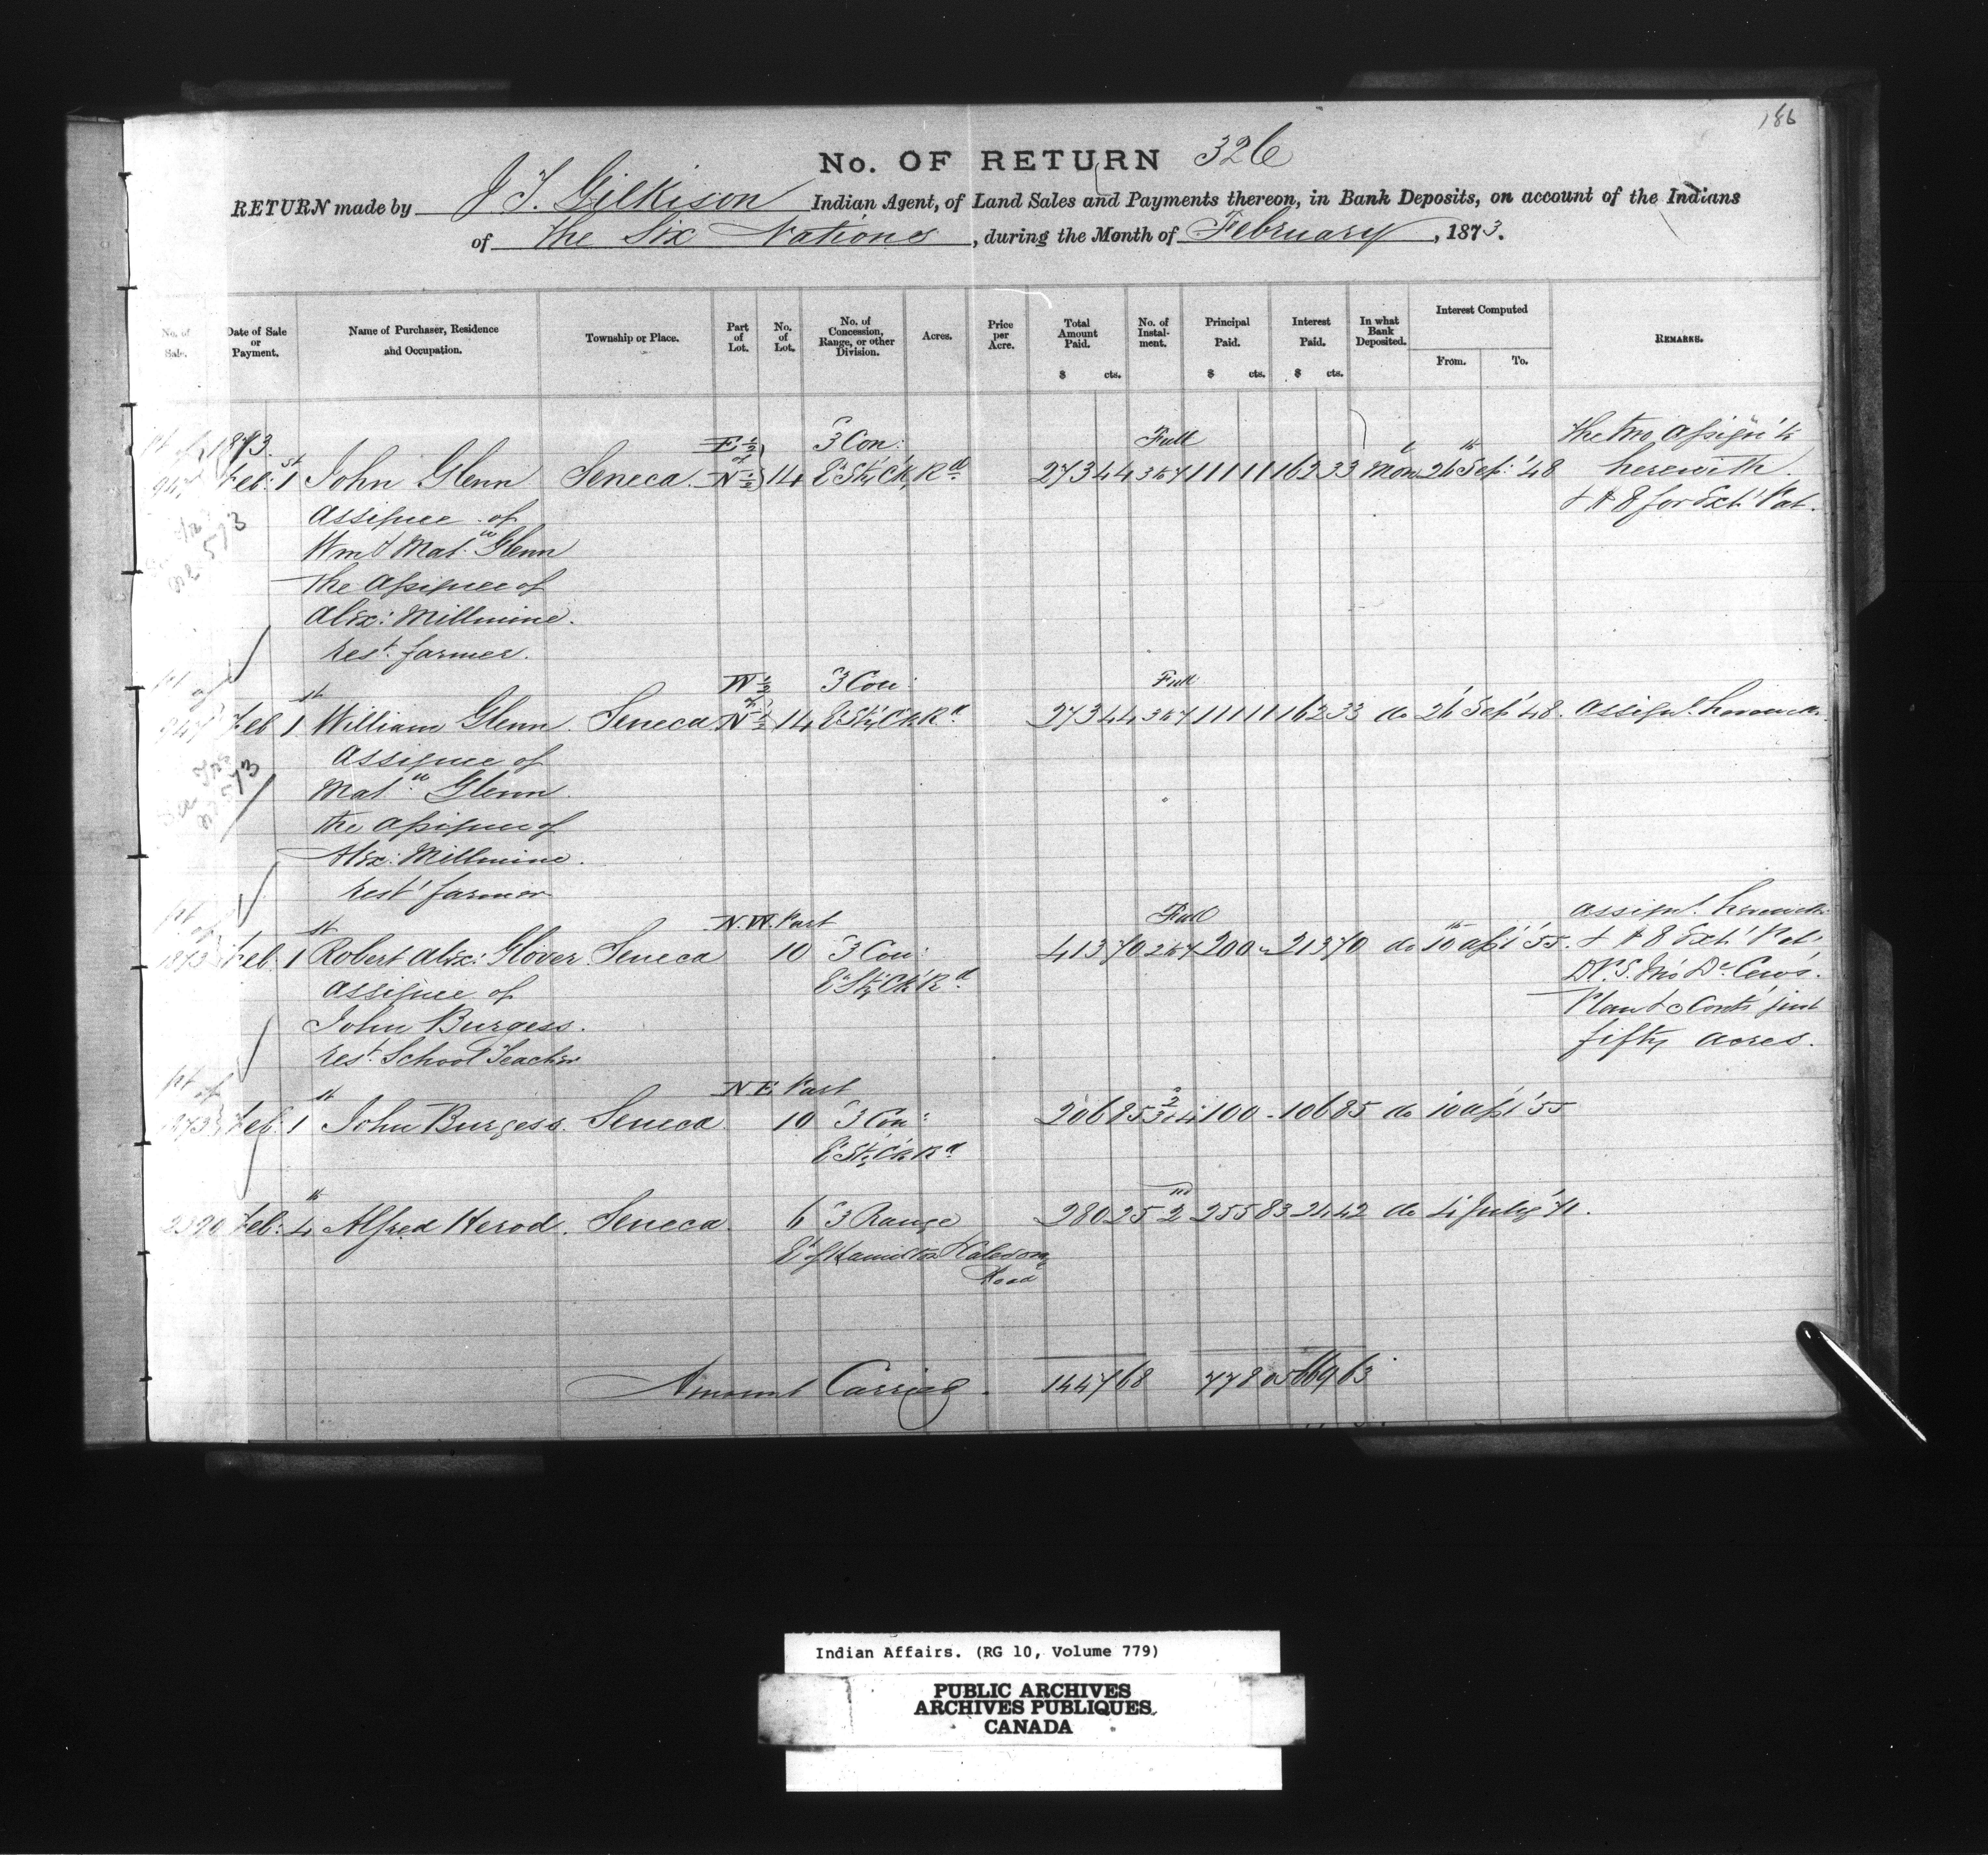 186
No. OF RETURN 326
RETURN made by J T. Gilkison Indian Agent, of Land Sales and Payments thereon, in Bank Deposits, on account of the Indians
of the Six Nations, during the Month of February, 1873.
No. of Sale. Date of Sale or Payment. Name of Purchaser, Residence and Occupation. Township or Place. Part of Lot. No. of Lot. No. of Concession, Range, or other Division. Acres. Price per Acre. Total Amount Paid. $ cts. No. of Instalment. Principal Paid. $ cts. Interest Paid. $ cts. In what Bank Deposited. Interest Computed From. To. Remarks.
1873. E ½ of 3 Con: Full The two Assign'ts
Feb: 1st John Glenn Seneca. N ½ 14 E. Sty. Ck. Rd 273 44 3 & 4 111 11 162 33 Mon 26 Sep: '48 herewith.
Assignee of & A 8 for Ext. Pat.
Wm & Mat.w Glenn
the Assignee of
Alex: Millmine.
rest. farmer.
W ½ of 3 Con: Full
Feb 1st William Glenn. Seneca N ½ 14 E Sty Ck Rd 273 44 3 & 4 111 11 162 33 do 26 Sep '48. Assignt. herewith
Assignee of
Mat.w Glenn.
the Assignee of
Alex: Millmine.
rest farmer
N.W. Part Full Assignt. herewith
1873 Feb. 1st Robert Alex: Glover Seneca 10 3 Con: 413 70 2 & 4 200 " 213 70 do 10 Apl '55. & A 8 Ext. Pat.
Assignee of E. Sty. Ck. Rd
John Burgess. fifty acres.
rest. School Teacher
pt of N E Part
1873 Feb: 1st John Burgess. Seneca 10 3 Con: 206 85 2 3 & 4 100 - 106 85 do 10 Apl '55
E Sty Ck Rd
Feb: 4th Alfred Herod. Seneca. 6 3 Range 280 25 2nd 255 83 24 42 do 4 July '71.
E of Hamilton Road
Amount Carried. 1447 68 778 05 669 63
Indian Affairs. (RG 10, Volume 779)
PUBLIC ARCHIVES
ARCHIVES PUBLIQUES
CANADA